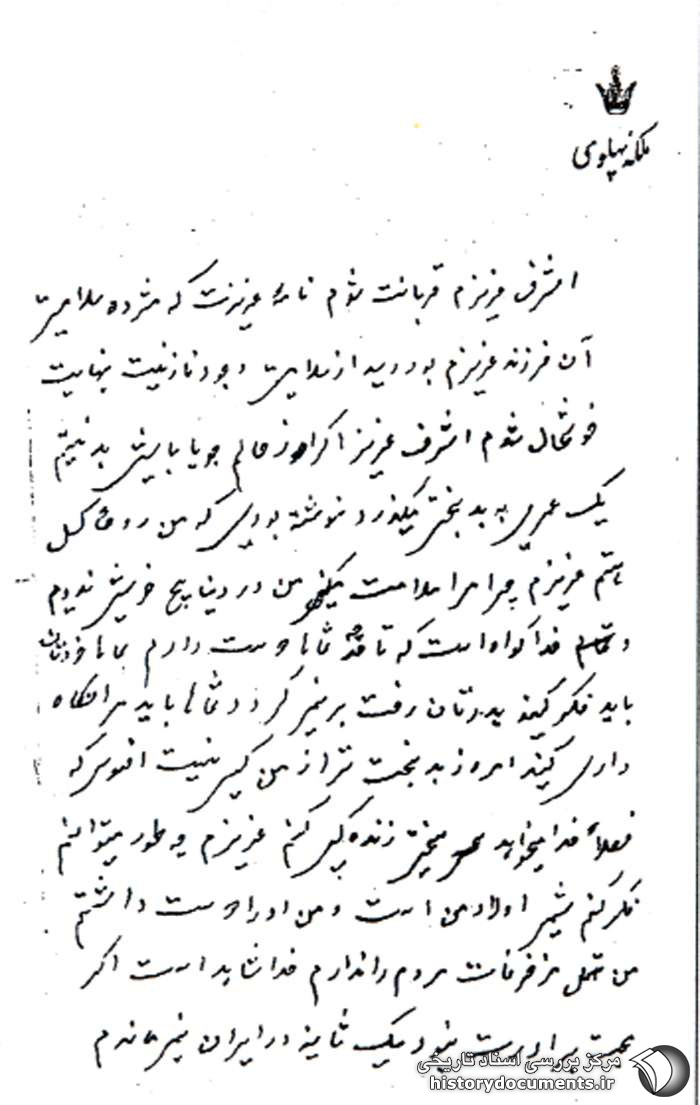 ملکه پهلوی
اشرف عزیزم قربانت شوم نامهٔ عزیزت که مژده سلامتی
آن فرزند عزیزم بود رسید از سلامتی وجود نازنینت بینهایت
خوشحال شدم اشرف عزیز اگر از حالم جویا باشی بد نیستم
یک عمری به بدبختی میگذرد نوشته بودی که من روحا کسل
هستم عزیزم چرا مرا ملامت میکنی من در دنیا هیچ خوشی ندیدم
خدا گواه است که تا چه شماها دوست دارم شماها خودتان
باید فکر کنید پدرتان رفت برنمیگردد شماها باید مرا نگاه
داری کنید امروز بدبخت تر از من کسی نیست افسوس که
فعلاً خدا میخواهد زندگی کنم عزیزم چطور میتوانم
فکر کنم شمس اولاد من است و من او را دوست داشتم
من تحمل مزخرفات مردم را ندارم خدا شاهد است اگر
محبت برادرت نبود یک ثانیه در ایران نمیماندم
مرکز بررسی اسناد تاریخی
historydocuments.ir